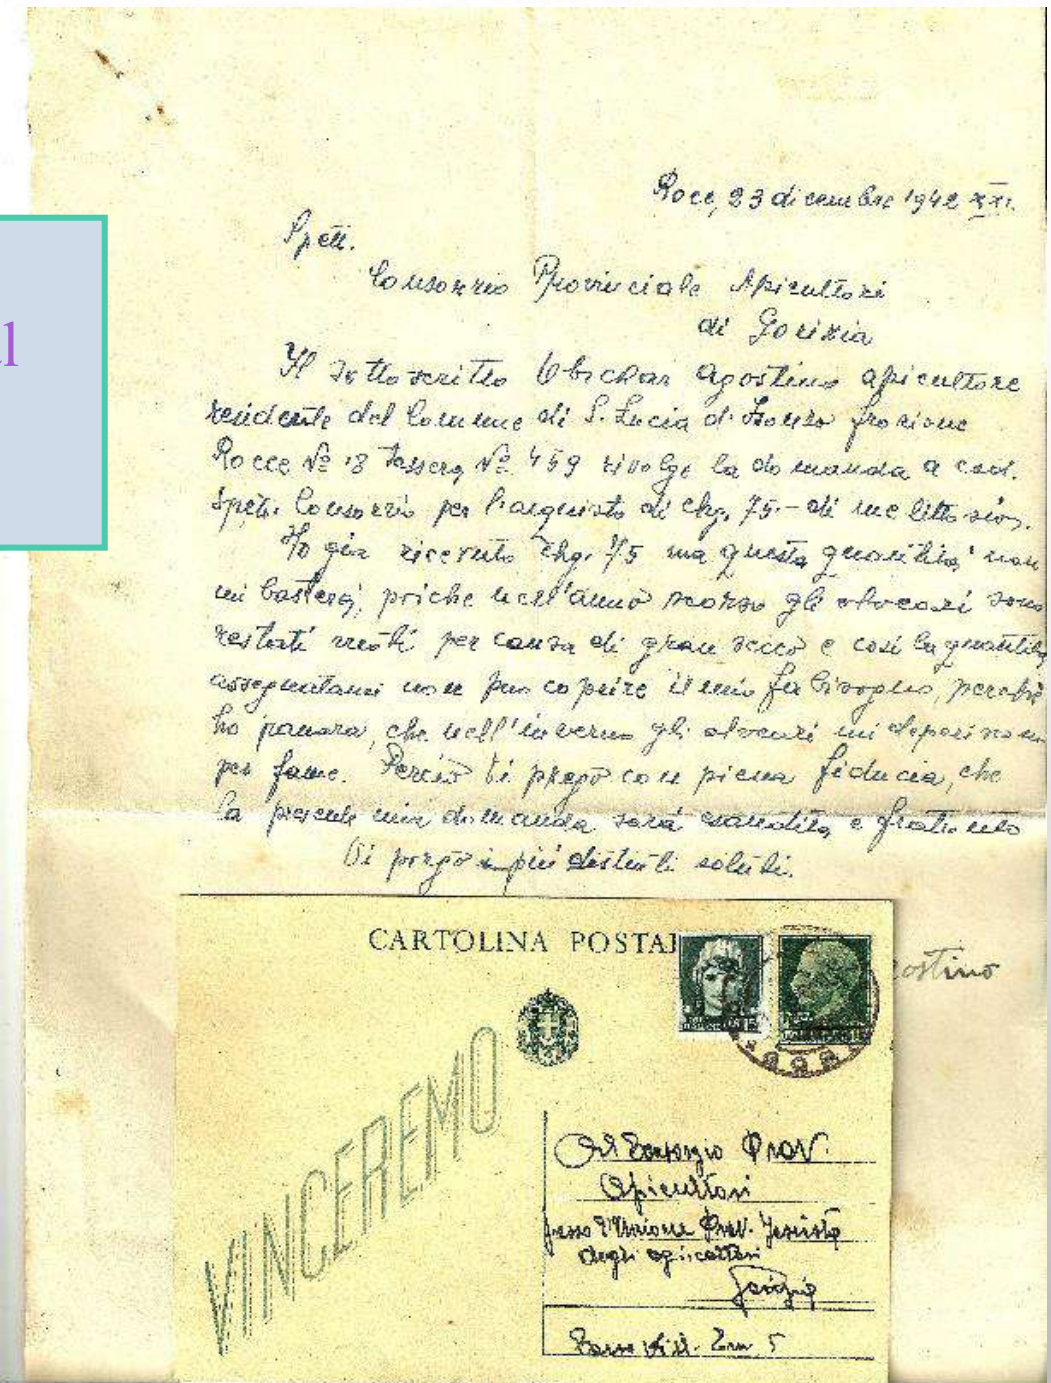 l
Roce, 23 dicembre 1942 XXI.
Spett.
Consorzio Provinciale Apicultori
di Gorizia
Il sottoscritto Agostino apicultore
residente del Comune di S. Lucia d'Isonzo frazione
Rocce Nº 18 Tessera Nº 459 rivolge la domanda a cod.
Spett. Consorzio per l'acquisto di chg. 75.- di
Ho già ricevuto chg. ma questa quantità non
mi basterà, poiche nell'anno scorso gli alveari sono
restati per causa di gran secco e così la quantità
assegnatami non può coprire il mio fabisogno, perchè
ho panura, che nell'inverno gli alveari mi
per fame. Perciò Vi prego con piena fiducia, che
la presente mia domanda sarà esaudita e
Vi porgo i più distinti saluti.
ostino
CARTOLINA POSTA
VINCEREMO
Al Consorzio Prov.
Apicultori
presso l'Unione Prov. Fascista
degli agricoltori
Gorizia
5